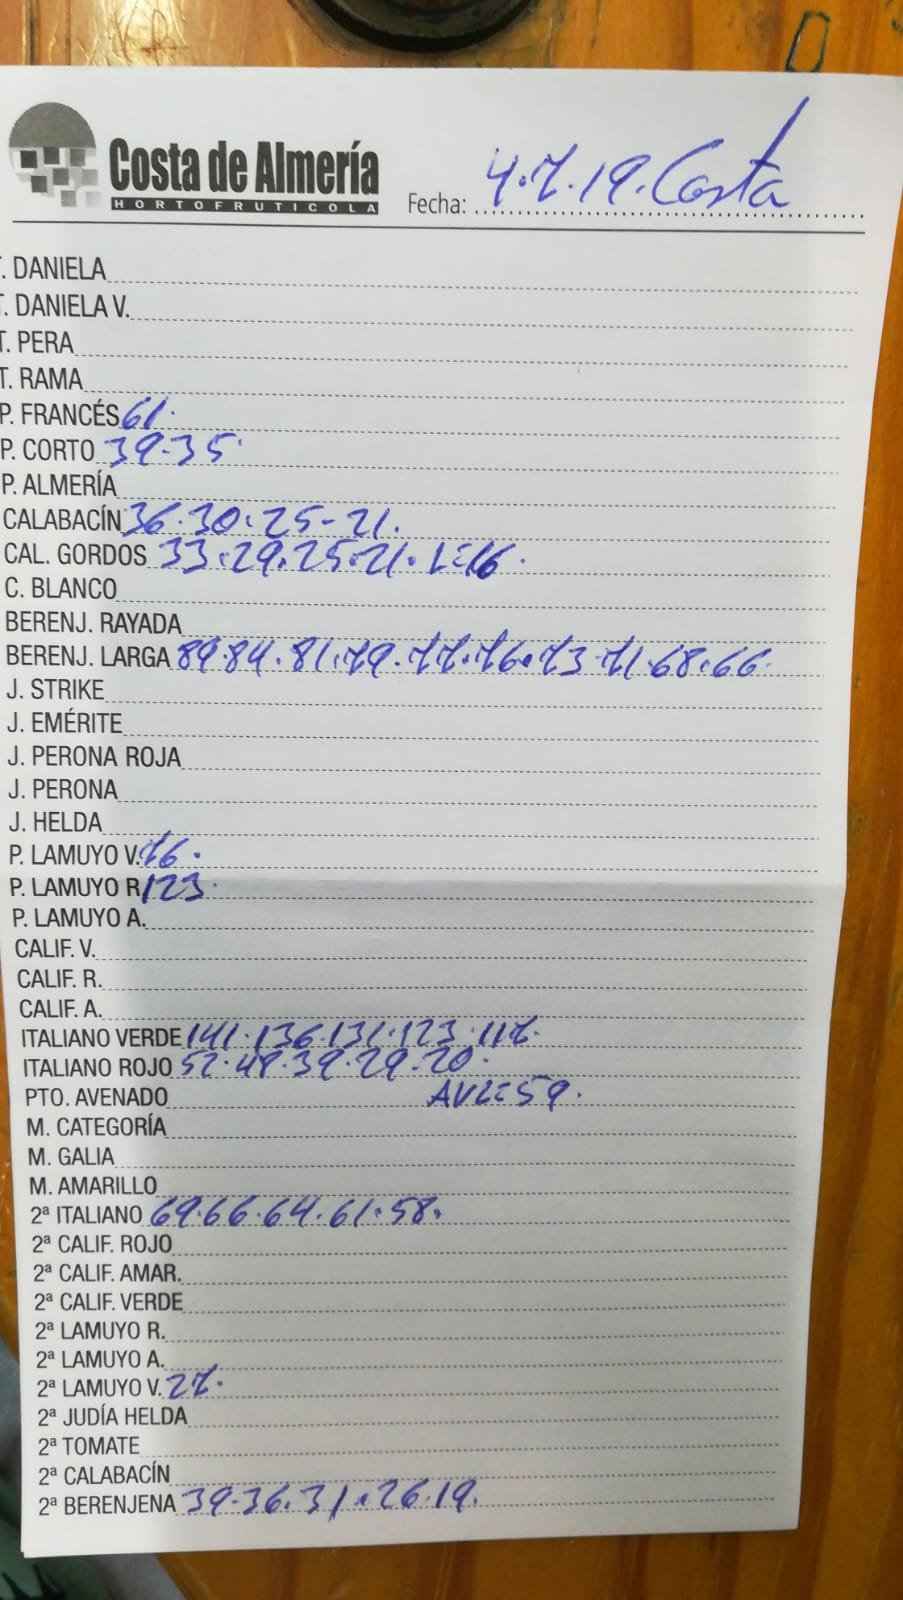 Costa de Almería
HORTOFRUTICOLA
Fecha: 4.7.19. Costa
T. DANIELA
T. DANIELA V.
T. PERA
T. RAMA
P. FRANCÉS 61.
P. CORTO 39.35.
P. ALMERÍA
CALABACÍN 36.30.25-21.
CAL. GORDOS 33.29.25.21. L=16.
C. BLANCO
BERENJ. RAYADA
BERENJ. LARGA 89.84.81.79.77.76.73.71.68.66.
J. STRIKE
J. EMÉRITE
J. PERONA ROJA
J. PERONA
J. HELDA
P. LAMUYO V. 76.
P. LAMUYO R. 123.
P. LAMUYO A.
CALIF. V.
CALIF. R.
CALIF. A.
ITALIANO VERDE 141.136.131.123.117.
ITALIANO ROJO 52.48.39.29.20.
PTO. AVENADO AVE=59.
M. CATEGORÍA
M. GALIA
M. AMARILLO
2ª ITALIANO 69.66.64.61.58.
2ª CALIF. ROJO
2ª CALIF. AMAR.
2ª CALIF. VERDE
2ª LAMUYO R.
2ª LAMUYO A.
2ª LAMUYO V. 27.
2ª JUDÍA HELDA
2ª TOMATE
2ª CALABACÍN
2ª BERENJENA 39.36.31.26.19.